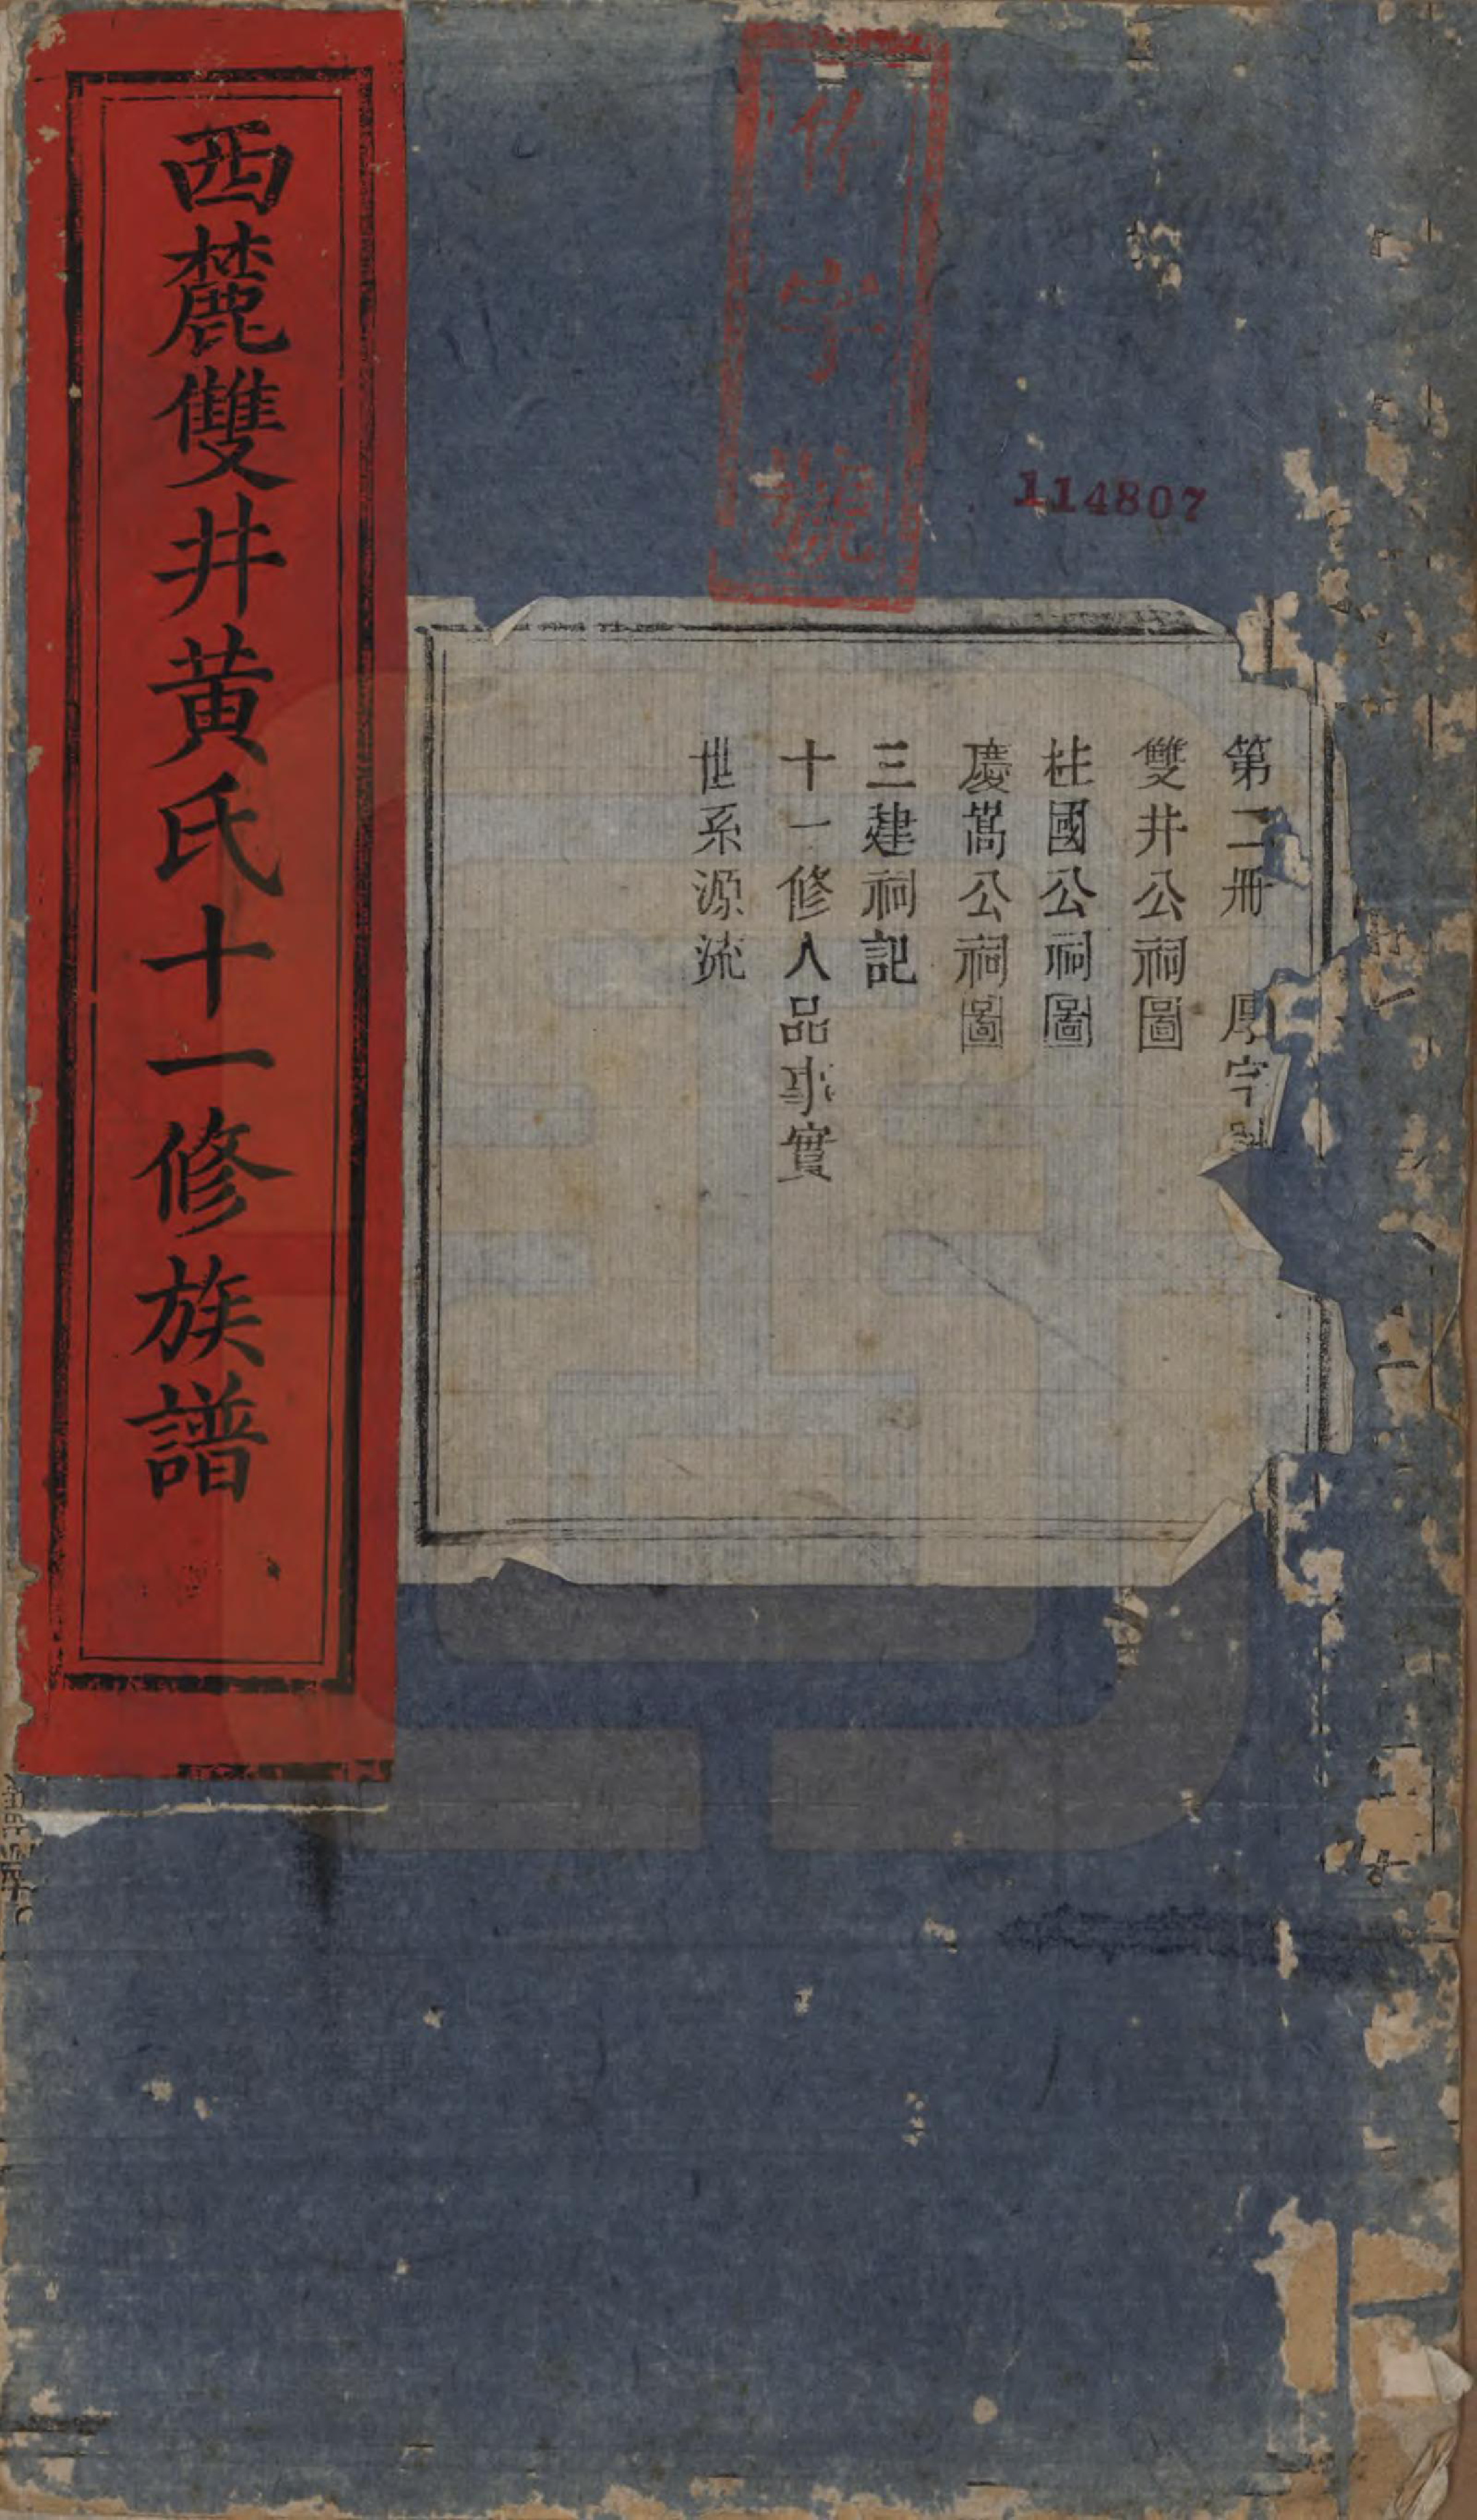 第二冊 厚字
雙井公祠圖
柱國公祠圖
慶嵩公祠圖
三建祠記
十一修人品事實
世系源流
字號
114807
西麓雙井黄氏十一修族譜